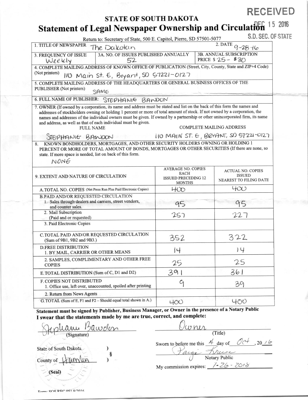 RECEIVED
DEC 15 2016
S.D. SEC. OF STATE
STATE OF SOUTH DAKOTA
Statement of Legal Newspaper Ownership and Circulation
Return to: Secretary of State, 500 E. Capitol, Pierre, SD 57501-5077
1. TITLE OF NEWSPAPER The Dakotan
2. DATE 9-28-16
3. FREQUENCY OF ISSUE Weekly
3A. NO. OF ISSUES PUBLISHED ANNUALLY 52
3B. ANNUAL SUBSCRIPTION PRICE $ 25 - $30
4. COMPLETE MAILING ADDRESS OF KNOWN OFFICE OF PUBLICATION (Street, City, County, State and ZIP+4 Code)
(Not printers) 110 Main St E, Bryant, SD 57221-0127
5. COMPLETE MAILING ADDRESS OF THE HEADQUARTERS OR GENERAL BUSINESS OFFICES OF THE
PUBLISHER (Not printers) SAME
6. FULL NAME OF PUBLISHER: STEPHANIE BAWDON
7. OWNER (If owned by a corporation, its name and address must be stated and
addresses of stockholders owning or holding 1 percent or more of total amount of stock. If not owned by a corporation, the
names and addresses of the individual owners must be given. If owned by a partnership or other unincorporated firm, its name
and address, as well as that of each individual must be given.
FULL NAME COMPLETE MAILING ADDRESS
STEPHANIE BAWDON 110 MAIN ST E, BRYANT, SD 57221-0127
8. KNOWN BONDHOLDERS, MORTGAGES, AND OTHER SECURITY HOLDERS OWNING OR HOLDING 1
PERCENT OR MORE OF TOTAL AMOUNT OF BONDS, MORTGAGES OR OTHER SECURITIES (If there are none, so
state. If more space is needed, list on back of this form.
NONE
9. EXTENT AND NATURE OF CIRCULATION
AVERAGE NO. COPIES EACH ISSUED PRECEDING 12 MONTHS
ACTUAL NO. COPIES ISSUED NEAREST TO FILING DATE
A. TOTAL NO. COPIES (Net Press Run Plus Paid Electronic Copies) 400 400
B. PAID AND/OR REQUESTED CIRCULATION
1. Sales through dealers and carriers, street vendors, and counter sales 95 95
2. Mail Subscription (Paid and or requested) 257 227
3. Paid Electronic Copies
C. TOTAL PAID AND/OR REQUESTED CIRCULATION (Sum of 9B1, 9B2 and 9B3) 352 322
D. FREE DISTRIBUTION
1. BY MAIL, CARRIER OR OTHER MEANS 14 14
2. SAMPLES, COMPLIMENTARY AND OTHER FREE COPIES 25 25
E. TOTAL DISTRIBUTION (Sum of C, D1 and D2) 391 361
F. COPIES NOT DISTRIBUTED
1. Office use, left over, unaccounted, spoiled after printing 9 39
2. Return from News Agents
G. TOTAL (Sum of E, F1 and F2 - Should equal total shown in A.) 400 400
Statement must be signed by Publisher, Business Manager, or Owner in the presence of a Notary Public
I swear that the statements made by me are true, correct, and complete:
Stephanie Bawdon Owner
(Signature) (Title)
State of South Dakota )
County of Hamlin )
(Seal)
Sworn to before me this day of Oct, 2016
Notary Public
My commission expires: